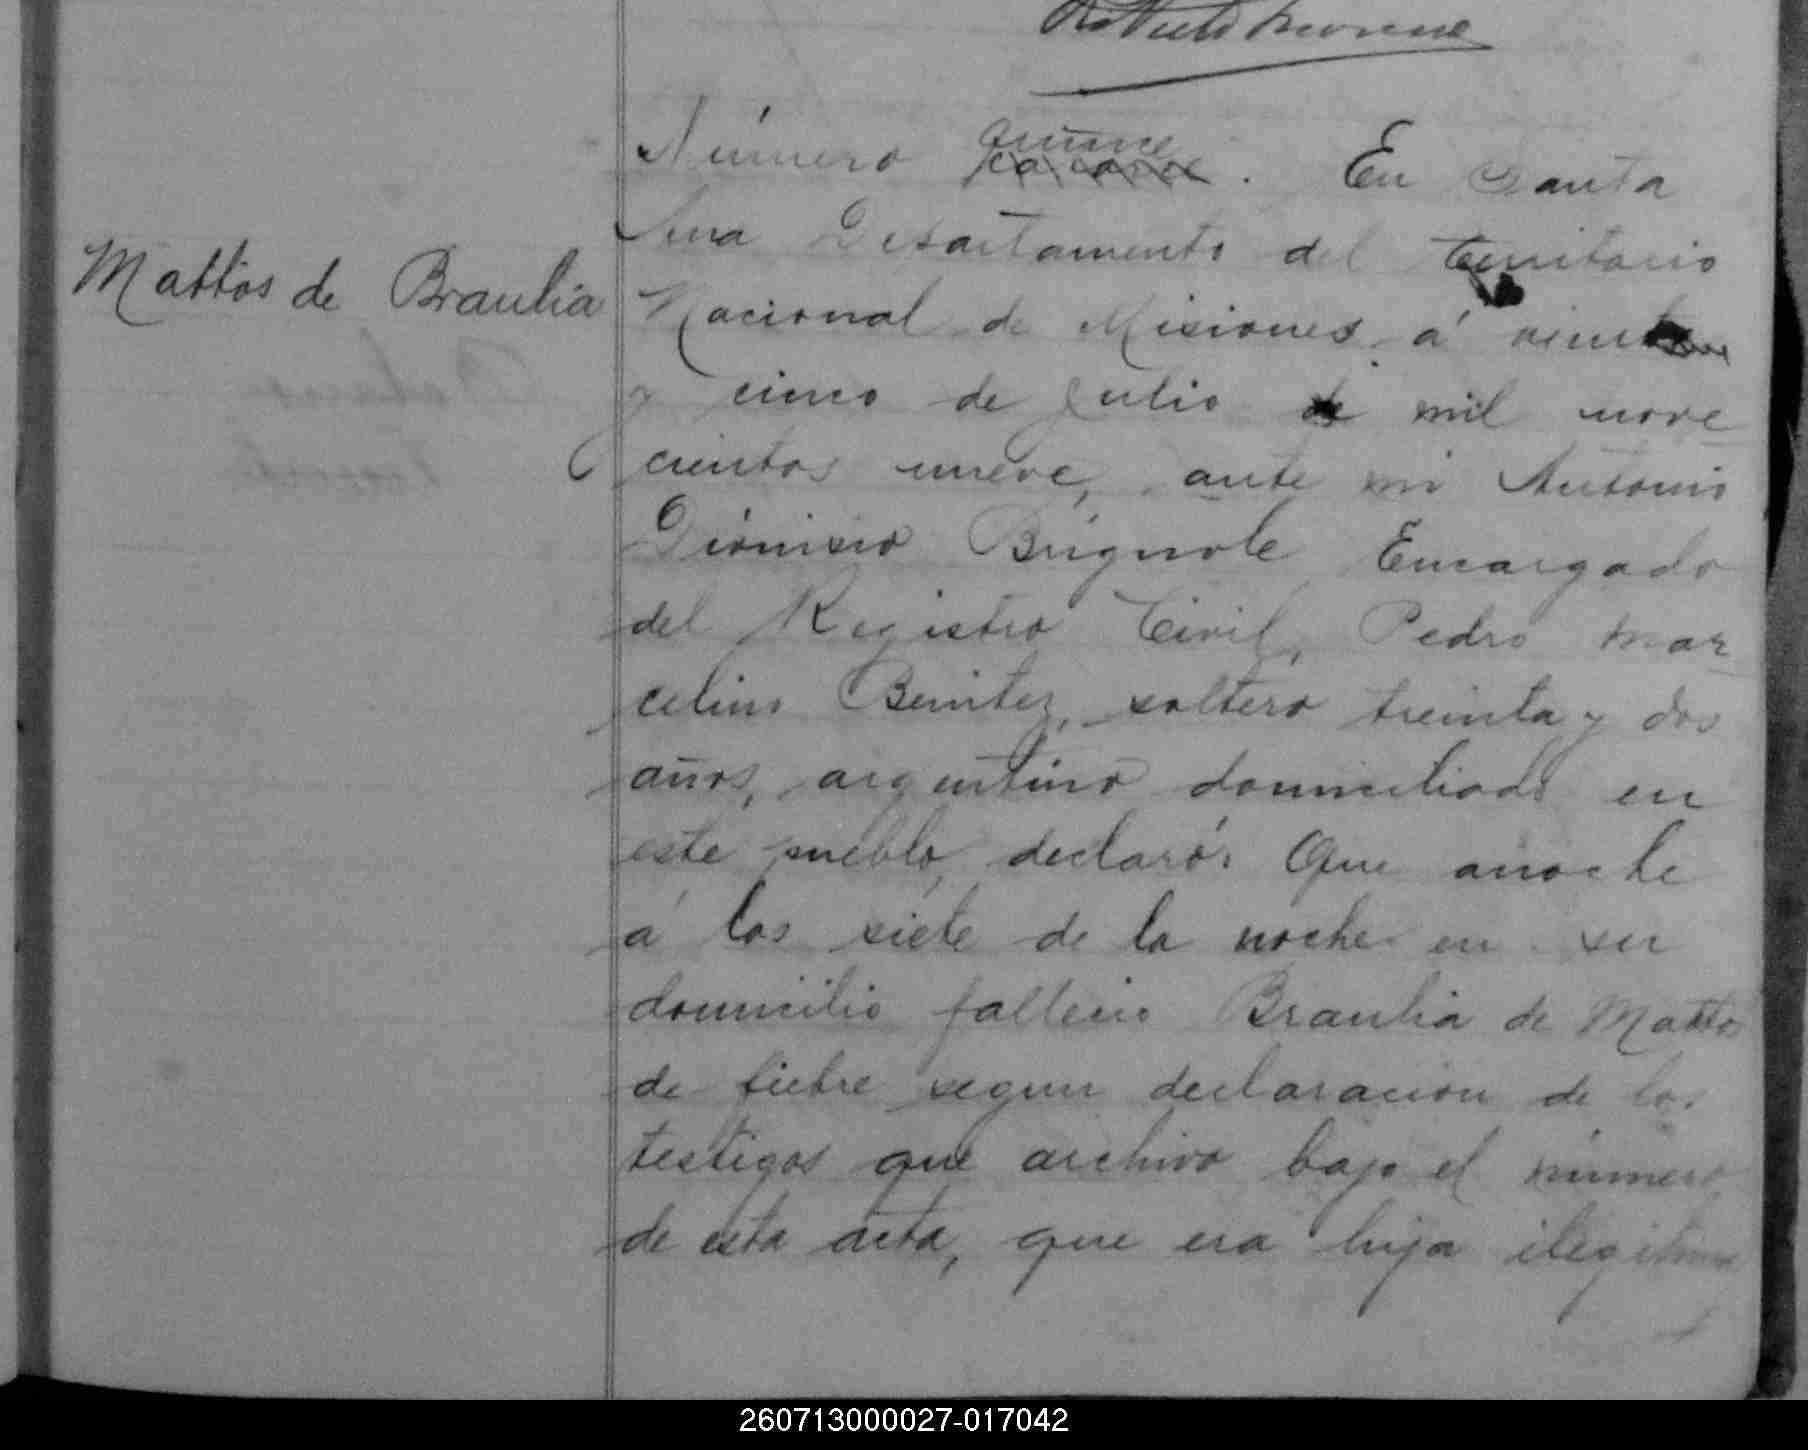 Número quince catorce. En Santa
Ana Departamento del territorio
Mattos de Braulia
Nacional de Misiones á veinte
y cinco de Julio de mil nove
cientos nueve, ante mi Antonio
Dionisio Brignole Encargado
del Registro Civil, Pedro Mar
celino Benitez, soltero treinta y dos
años, argentino domiciliado en
este pueblo, declaró: Que anoche
á las siete de la noche en su
domicilio fallecio Braulia de Mattos
de fiebre segun declaracion de los
testigos que archivo bajo el número
de esta acta, que era hija ilegitima
260713000027-017042